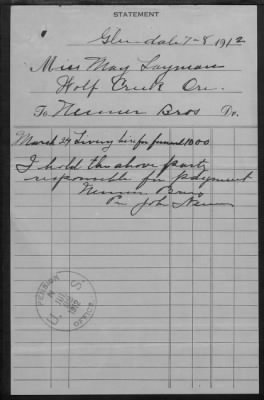 STATEMENT
Glendale 7-8 1912
Miss May Layman
Wolf Creek Ore.
To Neuner Bros Dr.
March 24 Livery hire for funeral 10 00
I hold the above party
responsible for patyment
Neuner Bros
Per John
U. S.
PENSION OFFICE
1912